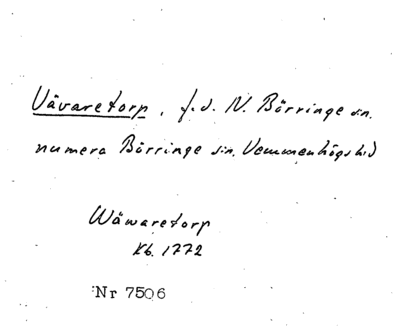 Vävaretorp, f.d. N. Börringe sn.
numera Börringe sn, Vemmenhögs hd
Wäwaretorp
Kb. 1772
Nr 7506